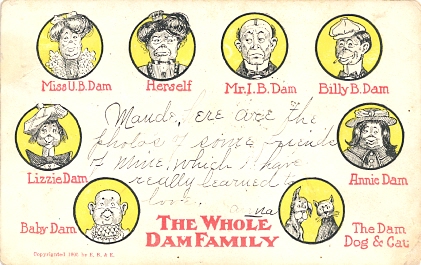 Miss U.B. Dam
Herself
Mr. I. B. Dam
Billy B. Dam
Maude, ere are the
photos of some friends
of mine which i have
really learned to
love.
Lizzie Dam
Annie Dam
Baby Dam
THE WHOLE
DAM FAMILY
The Dam
Dog & Cat
Copyrighted 1905 by